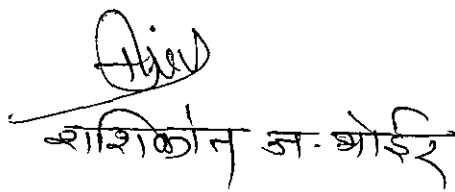 शशिकांत ज. भोईर